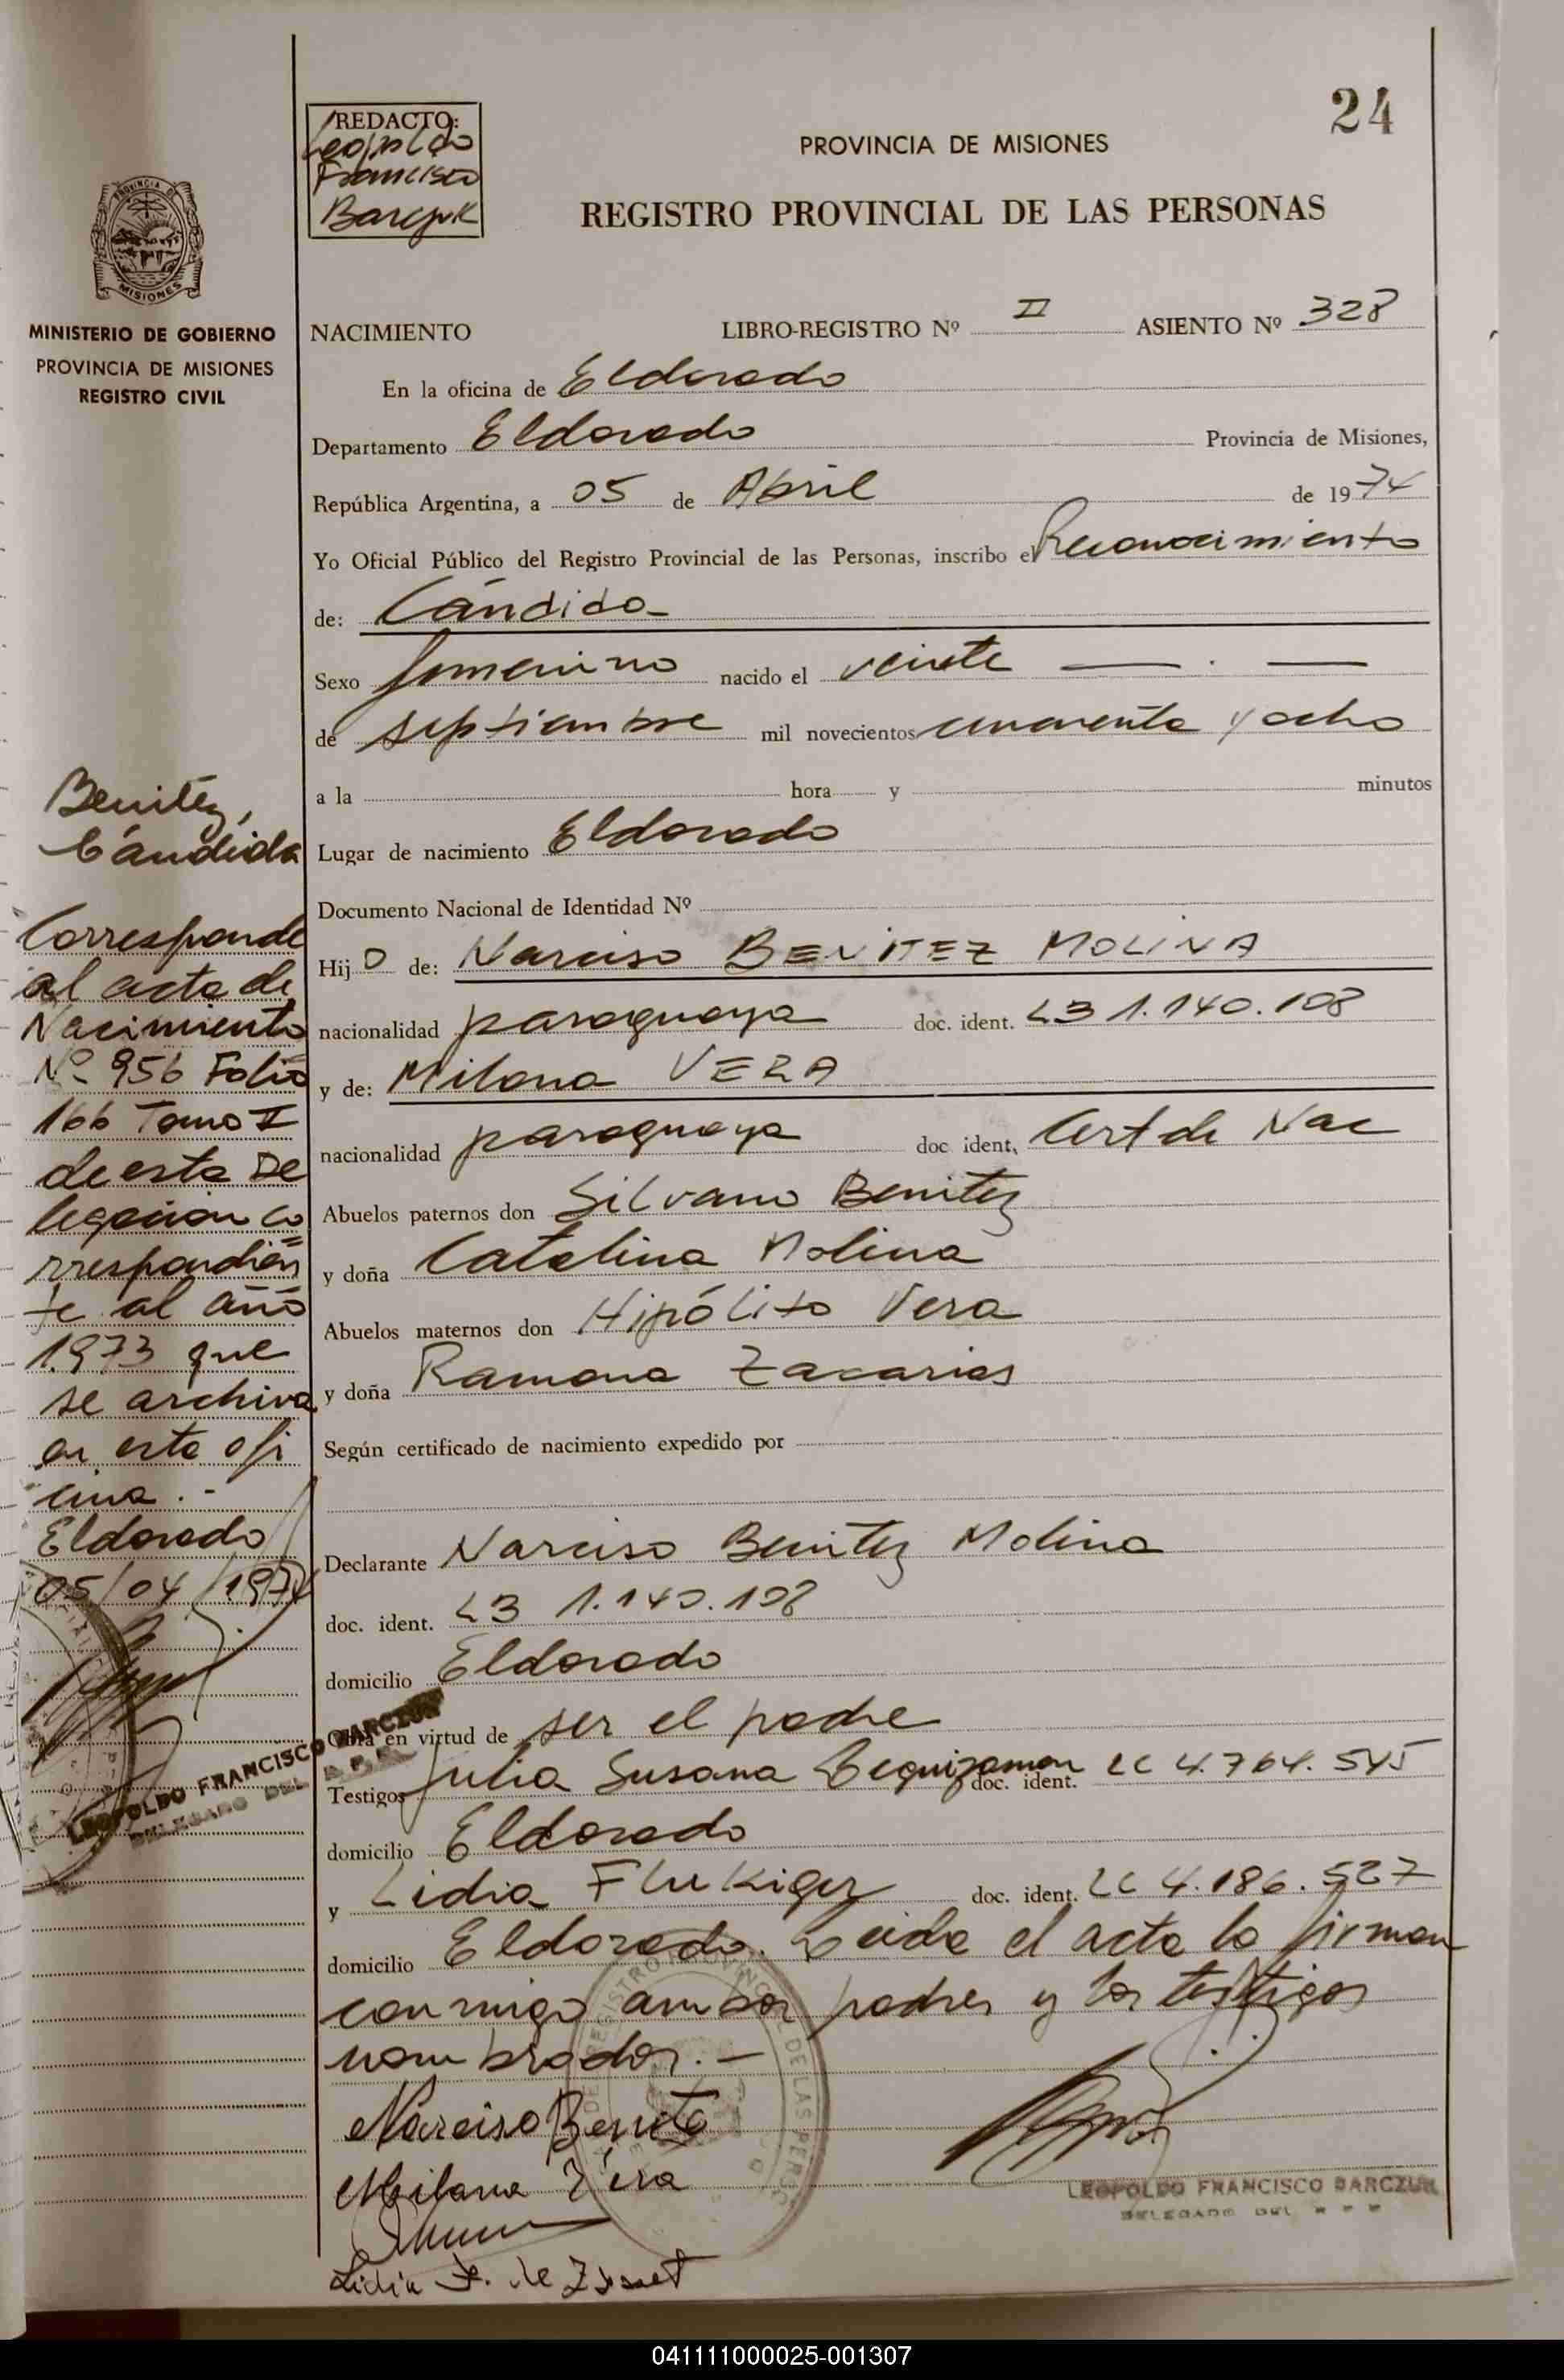 24
REDACTO:
Leopoldo
Francisco
Barczuk
PROVINCIA DE MISIONES
REGISTRO PROVINCIAL DE LAS PERSONAS
PROVINCIA DE
MISIONES
MINISTERIO DE GOBIERNO
PROVINCIA DE MISIONES
REGISTRO CIVIL
NACIMIENTO LIBRO-REGISTRO Nº II ASIENTO Nº 328
En la oficina de Eldorado
Departamento Eldorado Provincia de Misiones,
República Argentina, a 05 de Abril de 1974
Yo Oficial Público del Registro Provincial de las Personas, inscribo el Reconocimiento
de: Cándida
Sexo femenino nacido el veinte — . —
de septiembre mil novecientos cuarenta y ocho
a la hora y minutos
Lugar de nacimiento Eldorado
Documento Nacional de Identidad Nº
Hij o de: Narciso BENITEZ MOLINA
nacionalidad paraguaya doc. ident. L3 1.140.108
y de: Milana VERA
nacionalidad paraguaya doc ident, Cert de Nac
Abuelos paternos don Silvano Benitez
y doña Catalina Molina
Abuelos maternos don Hipólito Vera
y doña Ramona Zacarias
Según certificado de nacimiento expedido por
Declarante Narciso Benitez Molina
doc. ident. L3 1.140.108
domicilio Eldorado
Obra en virtud de ser el padre
Testigos Julia Susana Leguizamon doc. ident. LC 4.764.545
domicilio Eldorado
y Lidia Flukiger doc. ident. LC 4.186.527
domicilio Eldorado. Leida el acta la firman
conmigo ambos padres y los testigos
nombrados.—
Narciso Benite
Milana Vera
Lidia F. de
LEOPOLDO FRANCISCO BARCZUK
DELEGADO DEL R P P
Benitez,
Cándida
Corresponde
al acta de
Nacimiento
Nº 956 Folio
166 Tomo I
de esta De
legación co
rrespondien
te al año
1973 que
se archiva
en esta ofi
cina.-
Eldorado
05/04/1974
LEOPOLDO FRANCISCO BARCZUK
DELEGADO DEL R.P.P.
041111000025-001307